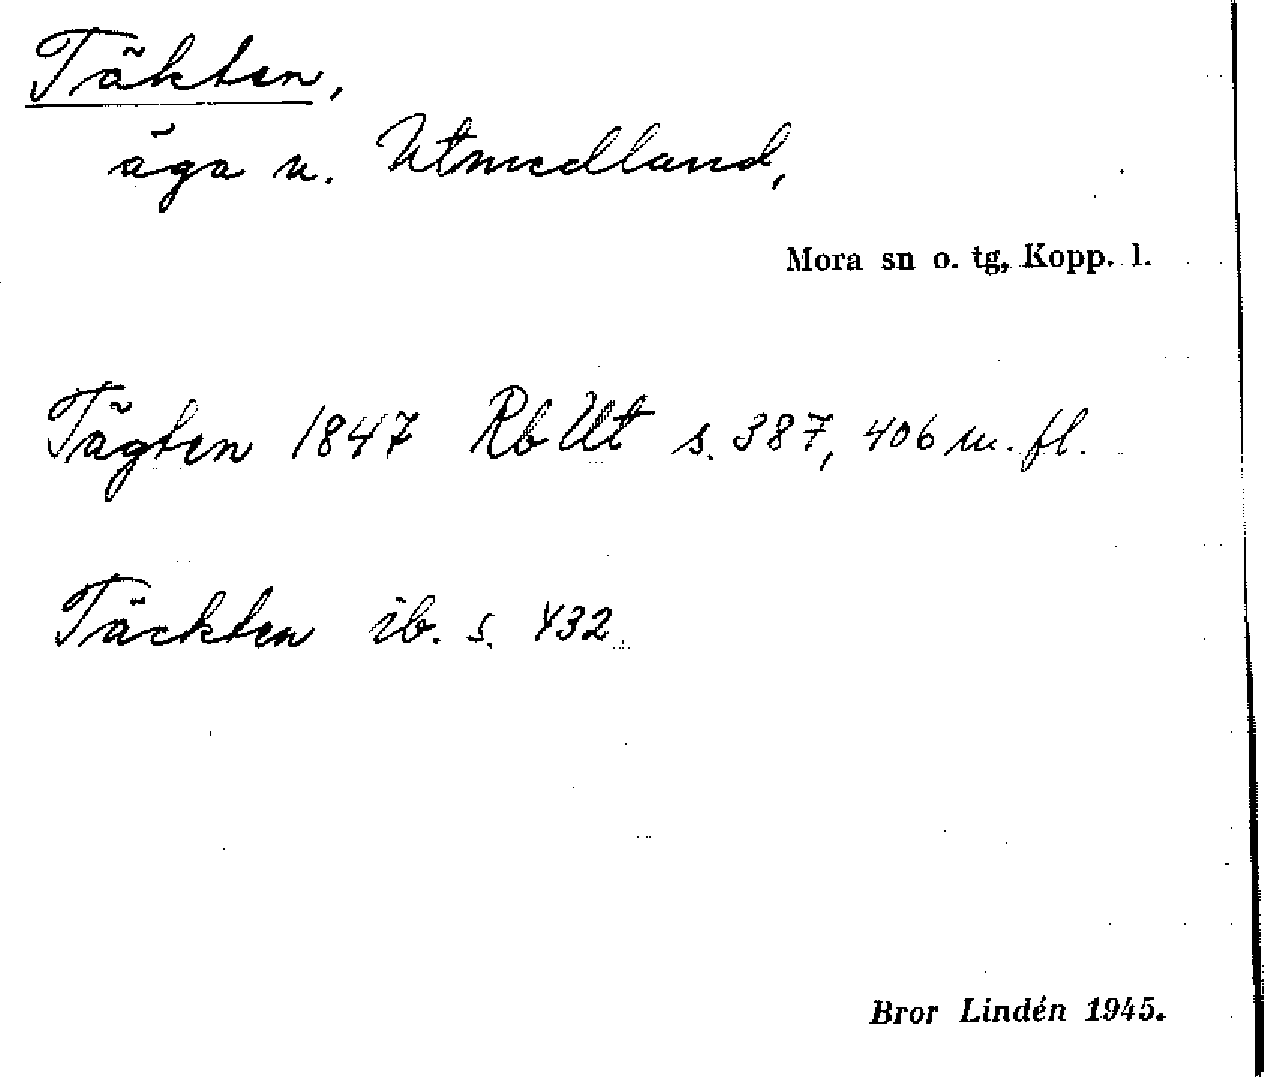 Täkten,
äga u. Utmedland,
Mora sn o. tg, Kopp. l.
Tägten 1847 Rb Ut s. 387, 406 m. fl.
Täckten ib. s. 432.
Bror Lindén 1945.